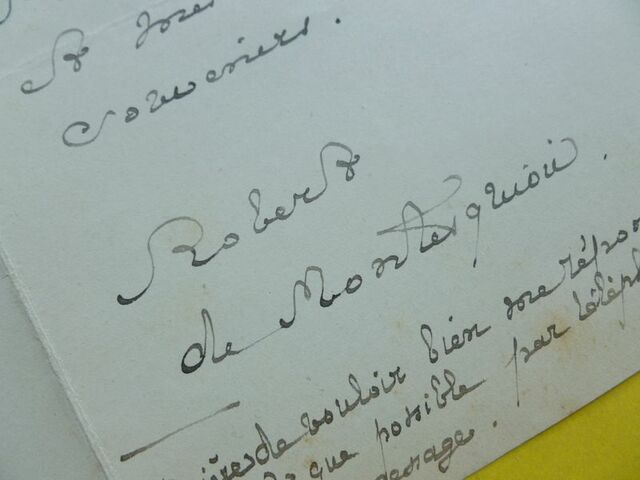 & mes
souvenirs.
Robert
de Montesquiou.
de vouloir bien me répon
que possible par téléph
message.